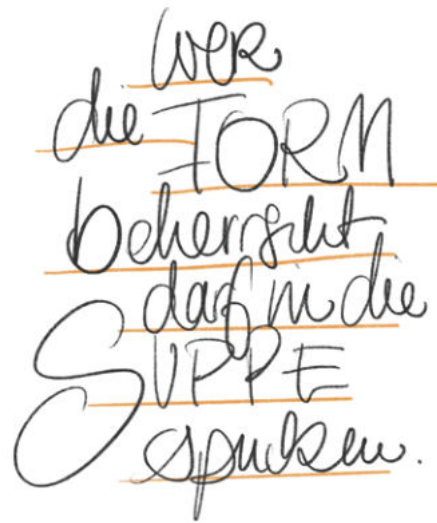 Wer
die FORM
beherrscht
darf in die
SUPPE
spucken.